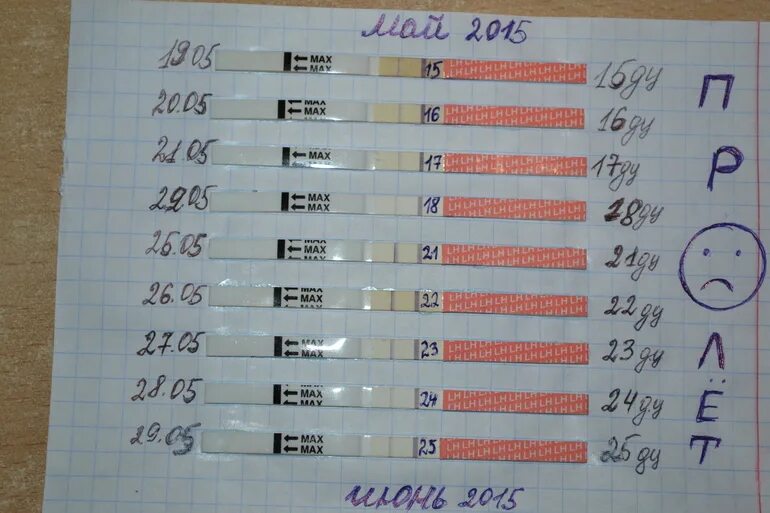 Май 2015
19.05 MAX MAX 15 LH LH LH LH LH LH 15ду П
20.05 MAX MAX 16 LH LH LH LH LH LH 16ду
21.05 MAX 17 LH LH LH LH LH LH 17ду Р
22.05 MAX MAX 18 LH LH LH LH LH LH 18ду
25.05 MAX MAX 21 LH LH LH LH LH LH 21ду
26.05 MAX MAX 22 LH LH LH LH LH LH 22ду
27.05 MAX MAX 23 LH LH LH LH LH LH 23ду Л
28.05 MAX MAX 24 LH LH LH LH LH LH 24ду Ё
29.05 MAX MAX 25 LH LH LH LH LH LH 25ду Т
июнь 2015